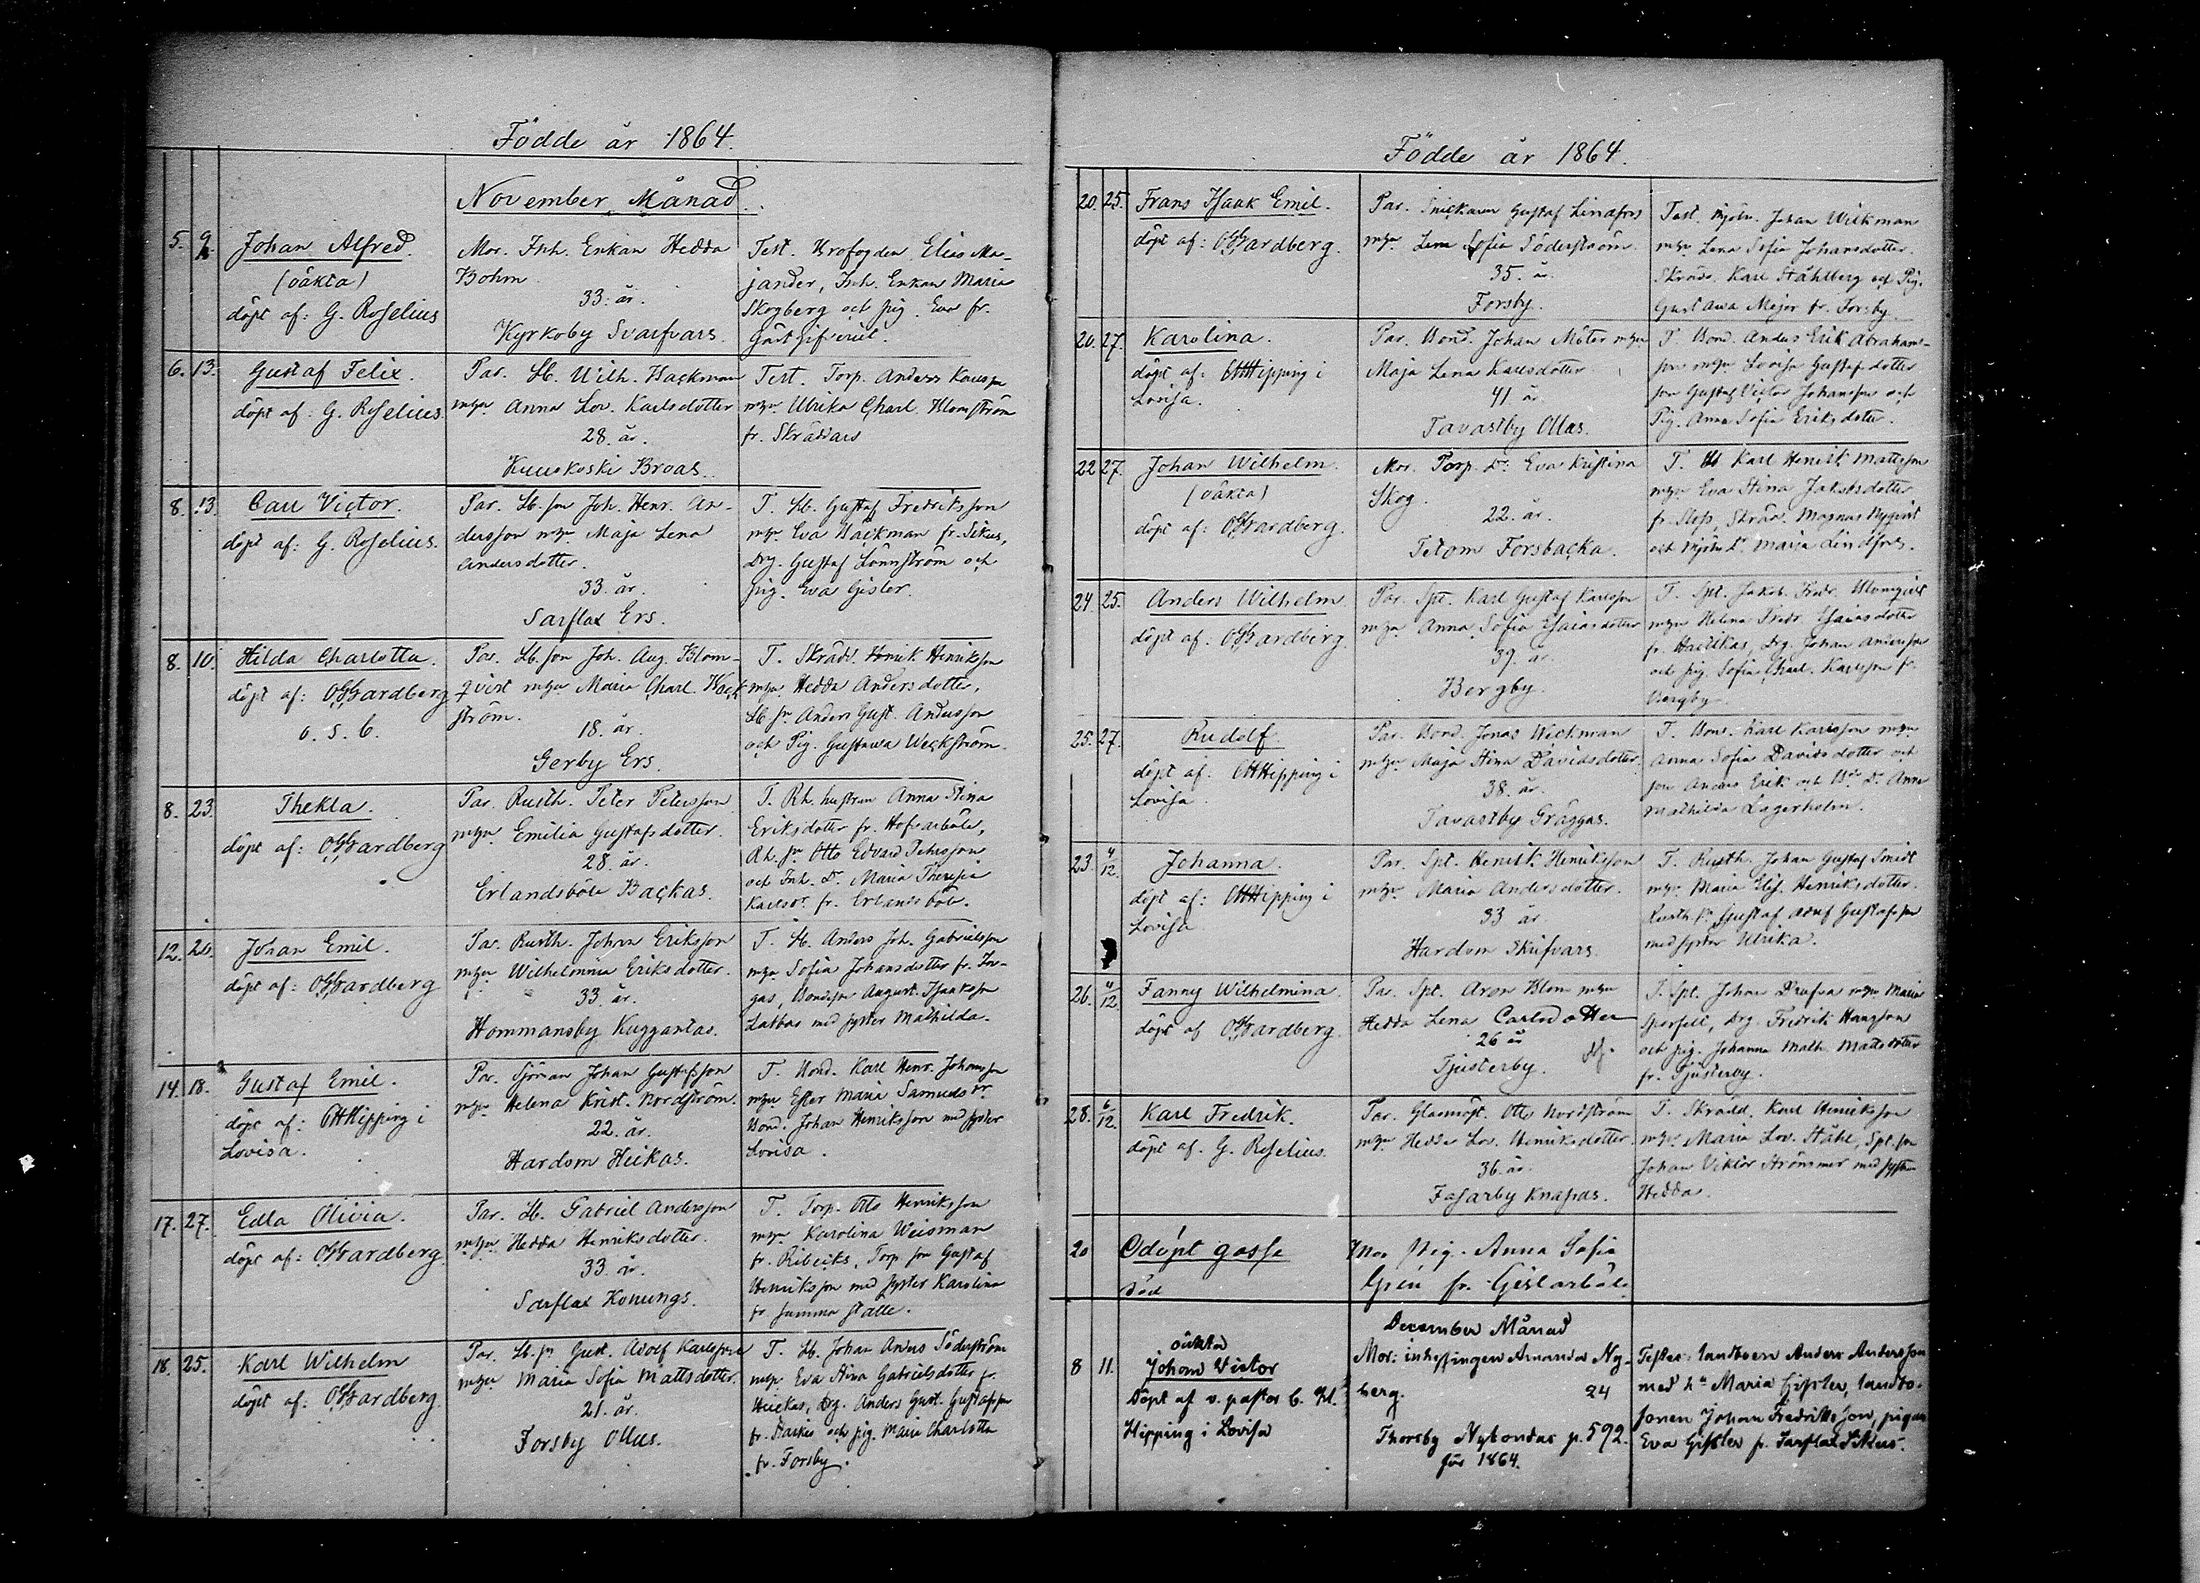 Födde år 1864.
November Månad.
5. 9. Johan Alfred.
(oäkta)
döpt af: G. Roselius
Mor. Inh. Enkan Hedda
Bohm
33. år.
Kyrkoby Svarfvars.
Test. Krofogden Elias Ma-
jander, Inh. Enkan Maria
Skogberg och pig. Eva fr.
Gästgifveriet.
6. 13. Gustaf Felix.
döpt af: G. Roselius.
Par. Lb. Wilh. Hackman
mhu Anna Lov. Karlsdotter
28. år.
Kuuskoski Broas.
Test. Torp. Anders Karlsson
mhu Ulrika Charl. Blomström
fr. Skräddars
8. 13. Carl Victor.
döpt af: G. Roselius.
Par. Lb. son Joh. Henr. An-
dersson mhu Maja Lena
Andersdotter.
33. år.
Sarflax Ers.
T. Lb. Gustaf Fredriksson
mhu Eva Hackman fr. Sikus,
Drg. Gustaf Lönnström och
pig. Eva Gisler.
8. 10. Hilda Charlotta.
döpt af: O. Gardberg
o. s. b.
Par. Lb. son Joh. Aug. Blom-
qvist mhu Maria Charl. Weck
ström.
18. år.
Gerby Ers.
T. Skrädd. Henrik Henriksson
mhu Hedda Andersdotter,
Lb. sn Anders Gust. Andersson
och Pig. Gustava Weckström.
8. 23. Thekla.
döpt af: O. Gardberg
Par. Rusth. Peter Petersson
mhu Emilia Gustafsdotter.
28. år.
Erlandsböle Backas.
T. Rh. hustrun Anna Stina
Eriksdotter fr. Hofvarböle,
Rh. sn Otto Edvard Petersson
och Inh. Dr. Maria Theresia
Karlsdr. fr. Erlandsböle.
12. 20. Johan Emil.
döpt af: O. Gardberg
Par. Rusth. Johan Eriksson
mhu Wilhelmina Eriksdotter.
33. år.
Hommansby Kuggantas.
T. Lb. Anders Joh. Gabrielsson
mhu Sofia Johansdotter fr.
gas, Bondeson August Isaksson
Labbas med syster Mathilda.
14. 18. Gustaf Emil.
döpt af: Hipping i
Lovisa.
Par. Sjöman Johan Gustafsson
mhu Helena Krist. Nordström.
22. år.
Hardom Heikas.
T. Bond. Karl Henr. Johansson
mhu Ester Maria Samuelsdr.
Bond. Johan Henriksson med syster
Lovisa.
17. 27. Edla Olivia.
döpt af: O. Gardberg.
Par. Lb. Gabriel Andersson
mhu Hedda Henriksdotter.
33. år.
Sarflax Konungs.
T. Torp. Otto Henriksson
mhu Karolina Weisman
fr. Ribecks, Torp. son Gustaf
Henriksson med syster Karolina
fr samma ställe.
18. 25. Karl Wilhelm
döpt af: O. Gardberg
Par. Lb. sn Gust. Adolf Karlsson
mhu Maria Sofia Mattsdotter.
21. år.
Forsby Ollus.
T. Lb. Johan Anders Söderström
mhu Eva Stina Gabrielsdotter fr.
Heikas, drg. Anders Gust. Gustafsson
fr. och pig. Maria Charlotta
fr. Forsby.
Födde år 1864.
20. 25. Frans Isaak Emil.
döpt af: O. Gardberg.
Par. Snickaren Gustaf Lindfors
mhu Lena Sofia Söderström.
35. år.
Forsby.
Test. Mjöln. Johan Wickman
mhu Lena Sofia Johansdotter.
Skrädd. Karl Ståhlberg och Pig.
Gustava Major fr. Forsby.
20. 27. Karolina.
döpt af: Hipping i
Lovisa.
Par. Bond. Johan Möter mhu
Maja Lena Karlsdotter
41 år.
Tavastby Ollas.
T. Bond. Anders Erik Abrahams-
son mhu Lovisa Gustafsdotter
son Gustaf Victor Johansson och
Pig. Anna Sofia Eriksdotter.
22 27. Johan Wilhelm.
(oäkta)
döpt af: O. Gardberg.
Mor. Torp. Dr. Eva Kristina
Skog.
22. år.
Tetom Forsbacka.
T. Lb Karl Henrik Mattsson
mhu Eva Stina Jakobsdotter
fr. Skrädd. Magnus Nyqvist
och Mjöln. Dr. Maria Lindfors.
24. 25. Anders Wilhelm
döpt af: O. Gardberg.
Par. Spt. Karl Gustaf Karlsson
mhu Anna Sofia Esaiasdotter
39. år.
Borgby.
T. Spt. Jakob Fredr. Blomqvist
mhu Helena Fredr. Esaiasdotter
fr. Drg. Johan Andersson
och pig. Sofia Charl. Karlsson fr.
Borgby.
25. 27. Rudolf
döpt af. Hipping i
Lovisa.
Par. Bond. Jonas Wickman
mhu Maja Stina Davidsdotter.
38. år.
Tavastby Gräggas.
T. Bond. Karl Karlsson mhu
Anna Sofia Davidsdotter och
son Anders Erik och Bde Dr. Anna
Mathilda Lagerholm.
23 4/12. Johanna.
döpt af: Hipping i
Lovisa
Par. Spt. Henrik Henriksson
mhu Maria Andersdotter.
33 år.
Hardom Skifvars.
T. Rusth. Johan Gustaf Smidt
mhu Maria Elis. Henriksdotter.
Rusth. sn Gustaf Adolf Gustafsson
med syster Ulrika.
26. 4/12. Fanny Wilhelmina.
döpt af O. Gardberg.
Par. Spt. Aron Blom mhu
Hedda Lena Carlsdotter
26 år
Tjusterby.
T. Spt. Johan mhu Maria
Drg. Fredrik
och pig. Johanna Math. Mattsdotter
fr. Tjusterby.
28. 6/12. Karl Fredrik.
döpt af. G. Roselius.
Par. Glasmäst. Otto Nordström
mhu Hedda Lov. Henriksdotter.
36. år.
Fasarby Knapas.
T. Skrädd. Karl Henriksson
mhu Maria Lov. Ståhl, Spt. son
Johan Viktor Strömmer med syster
Hedda.
20 Odöpt gosse
död
Mor Pig. Anna Sofia
Grén fr. Gislarböle
December Månad
8 11. oäkta
Johan Victor
Döpt af v. pastor
Hipping i Lovisa
Mor: inhysingen Amanda Ny-
berg. 24
Thorsby Nybondas p. 592.
för 1864.
Testes: landboen Anders Andersson
med hu Maria Gissler, landbo-
sonen Johan Fredriksson, pigan
Eva Gissler fr. Sarflax Sikus.